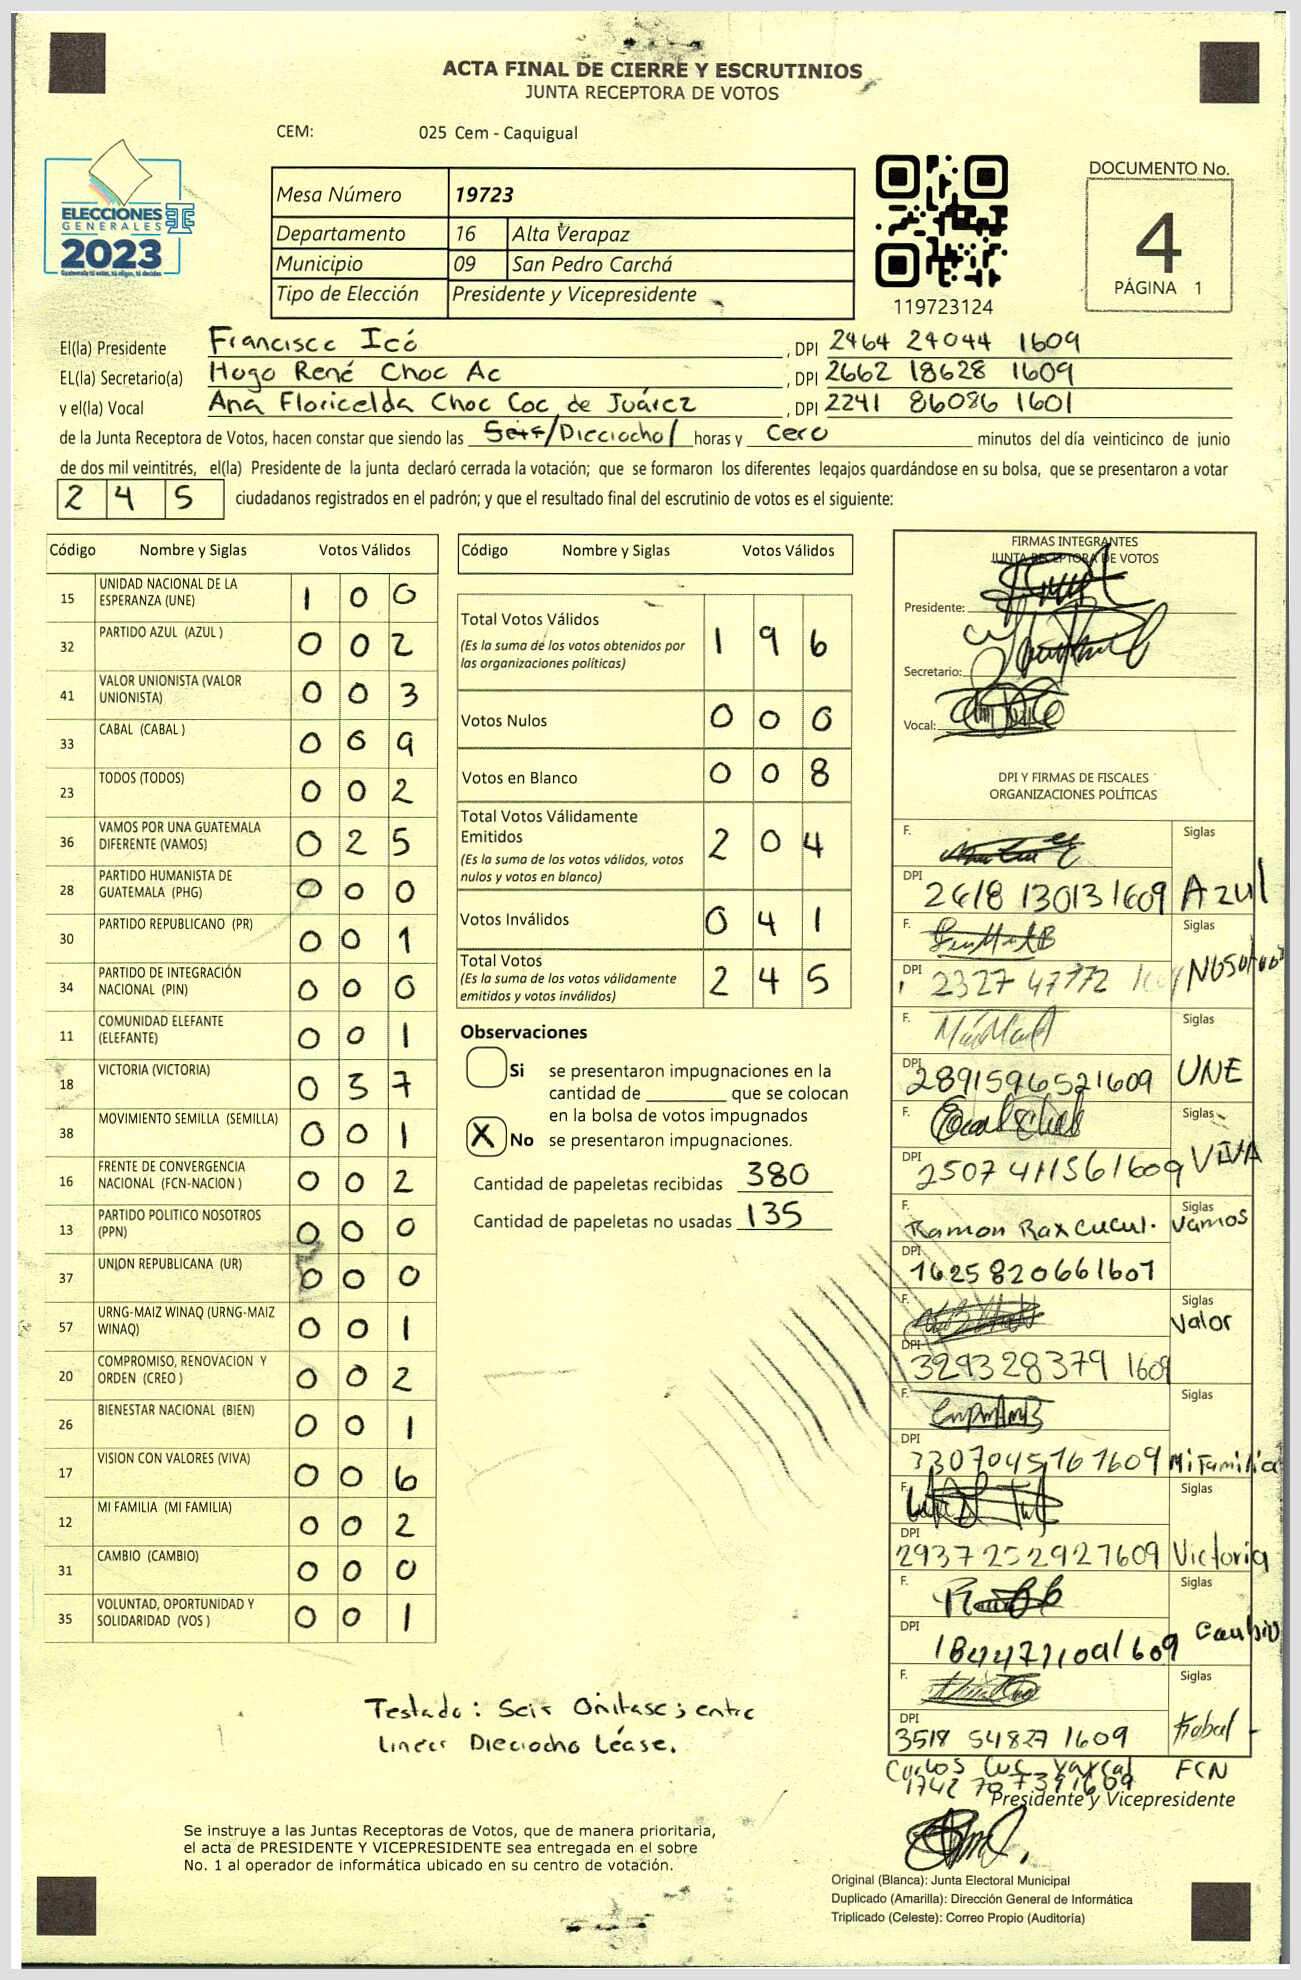 ACTA FINAL DE CIERRE Y ESCRUTINIOS
JUNTA RECEPTORA DE VOTOS
CEM: 025 Cem - Caquigual
ELECCIONES
GENERALES
2023
Guatemala tú eres, tú eliges, tú decides
Mesa Número 19723
Departamento 16 Alta Verapaz
Municipio 09 San Pedro Carchá
Tipo de Elección Presidente y Vicepresidente
119723124
DOCUMENTO No.
4
PÁGINA 1
El(la) Presidente Francisco Icó , DPI 2464 24044 1609
EL(la) Secretario(a) Hugo René Choc Ac , DPI 2662 18628 1609
y el(la) Vocal Ana Floricelda Choc Coc de Juárez , DPI 2241 86086 1601
de la Junta Receptora de Votos, hacen constar que siendo las Seis/Dieciocho/ horas y Cero minutos del día veinticinco de junio
de dos mil veintitrés, el(la) Presidente de la junta declaró cerrada la votación; que se formaron los diferentes legajos guardándose en su bolsa, que se presentaron a votar
2 4 5 ciudadanos registrados en el padrón; y que el resultado final del escrutinio de votos es el siguiente:
Código Nombre y Siglas Votos Válidos
15 UNIDAD NACIONAL DE LA ESPERANZA (UNE) 1 0 0
32 PARTIDO AZUL (AZUL ) 0 0 2
41 VALOR UNIONISTA (VALOR UNIONISTA) 0 0 3
33 CABAL (CABAL ) 0 6 9
23 TODOS (TODOS) 0 0 2
36 VAMOS POR UNA GUATEMALA DIFERENTE (VAMOS) 0 2 5
28 PARTIDO HUMANISTA DE GUATEMALA (PHG) 0 0 0
30 PARTIDO REPUBLICANO (PR) 0 0 1
34 PARTIDO DE INTEGRACIÓN NACIONAL (PIN) 0 0 0
11 COMUNIDAD ELEFANTE (ELEFANTE) 0 0 1
18 VICTORIA (VICTORIA) 0 3 7
38 MOVIMIENTO SEMILLA (SEMILLA) 0 0 1
16 FRENTE DE CONVERGENCIA NACIONAL (FCN-NACION ) 0 0 2
13 PARTIDO POLITICO NOSOTROS (PPN) 0 0 0
37 UNION REPUBLICANA (UR) 0 0 0
57 URNG-MAIZ WINAQ (URNG-MAIZ WINAQ) 0 0 1
20 COMPROMISO, RENOVACION Y ORDEN (CREO ) 0 0 2
26 BIENESTAR NACIONAL (BIEN) 0 0 1
17 VISION CON VALORES (VIVA) 0 0 6
12 MI FAMILIA (MI FAMILIA) 0 0 2
31 CAMBIO (CAMBIO) 0 0 0
35 VOLUNTAD, OPORTUNIDAD Y SOLIDARIDAD (VOS ) 0 0 1
Código Nombre y Siglas Votos Válidos
Total Votos Válidos 1 9 6
(Es la suma de los votos obtenidos por
las organizaciones políticas)
Votos Nulos 0 0 0
Votos en Blanco 0 0 8
Total Votos Válidamente
Emitidos 2 0 4
(Es la suma de los votos válidos, votos
nulos y votos en blanco)
Votos Inválidos 0 4 1
Total Votos 2 4 5
(Es la suma de los votos válidamente
emitidos y votos inválidos)
Observaciones
Si se presentaron impugnaciones en la
cantidad de que se colocan
en la bolsa de votos impugnados
X No se presentaron impugnaciones.
Cantidad de papeletas recibidas 380
Cantidad de papeletas no usadas 135
FIRMAS INTEGRANTES
JUNTA RECEPTORA DE VOTOS
Presidente:
Secretario:
Vocal:
DPI Y FIRMAS DE FISCALES
ORGANIZACIONES POLÍTICAS
F. Siglas
DPI 2618 13013 1609 Azul
F. Siglas
DPI 2327 47772 Nosotros
F. Siglas
DPI 2891596521609 UNE
F. Siglas
DPI 2507 411561609 VIVA
F. Ramon Rax Cucul. Siglas Vamos
DPI 1625820661607
F. Siglas Valor
DPI 329328379 1609
F. Siglas
DPI 3307045161609 Mi Familia
F. Siglas
DPI 2937252927609 Victoria
F. Siglas
DPI Cambio
F. Siglas
DPI 3518 54827 1609 Kabal
Carlos FCN
Presidente y Vicepresidente
Testado: Seis Omitase; entre
Linear Dieciocho Léase.
Se instruye a las Juntas Receptoras de Votos, que de manera prioritaria,
el acta de PRESIDENTE Y VICEPRESIDENTE sea entregada en el sobre
No. 1 al operador de informática ubicado en su centro de votación.
Original (Blanca): Junta Electoral Municipal
Duplicado (Amarilla): Dirección General de Informática
Triplicado (Celeste): Correo Propio (Auditoría)